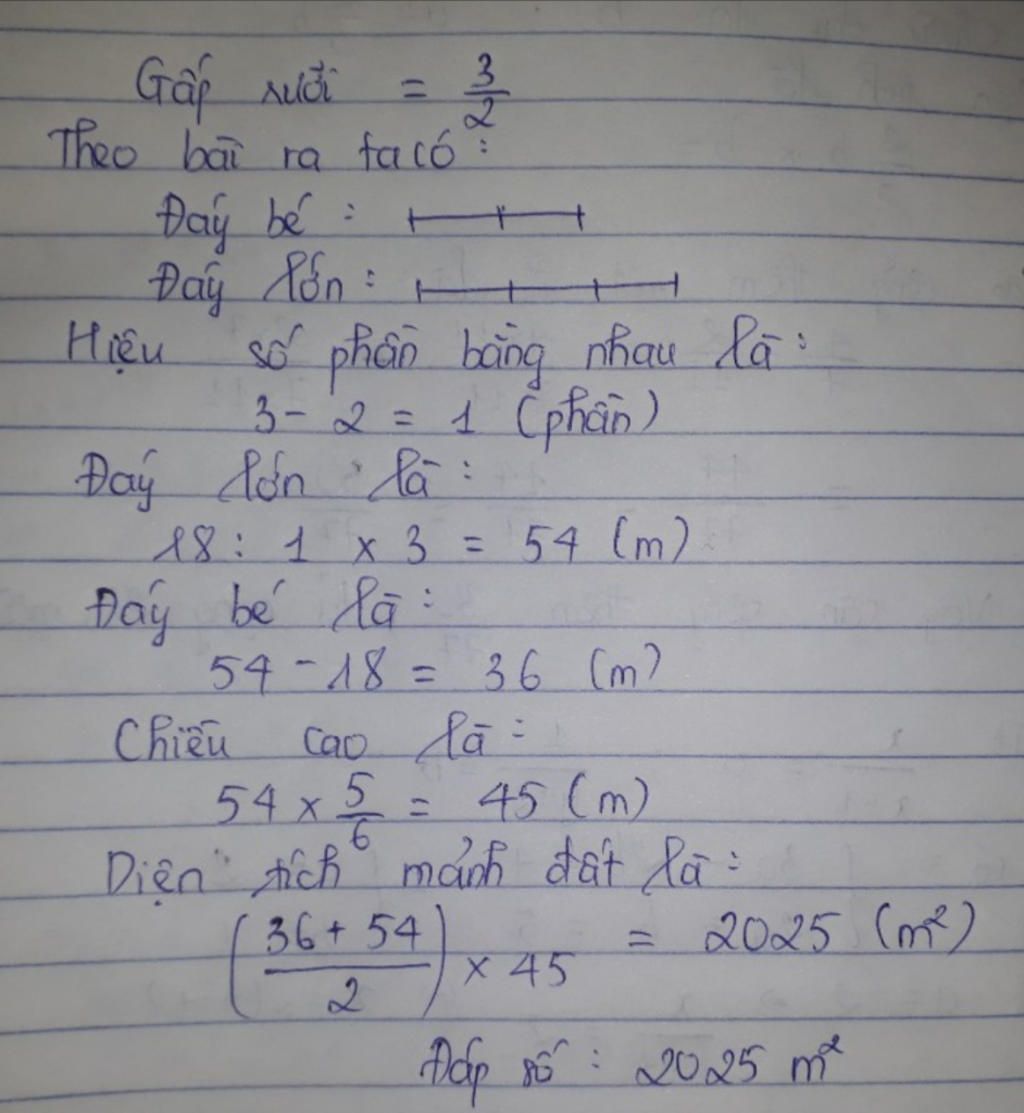 Gấp rưỡi = 3/2
Theo bài ra ta có :
Đáy bé :
Đáy lớn :
Hiệu số phần bằng nhau là :
3 - 2 = 1 (phần)
Đáy lớn là :
18 : 1 x 3 = 54 (m)
Đáy bé là :
54 - 18 = 36 (m)
Chiều cao là :
54 x 5/6 = 45 (m)
Diện tích mảnh đất là :
((36 + 54)/2) x 45 = 2025 (m²)
Đáp số : 2025 m²